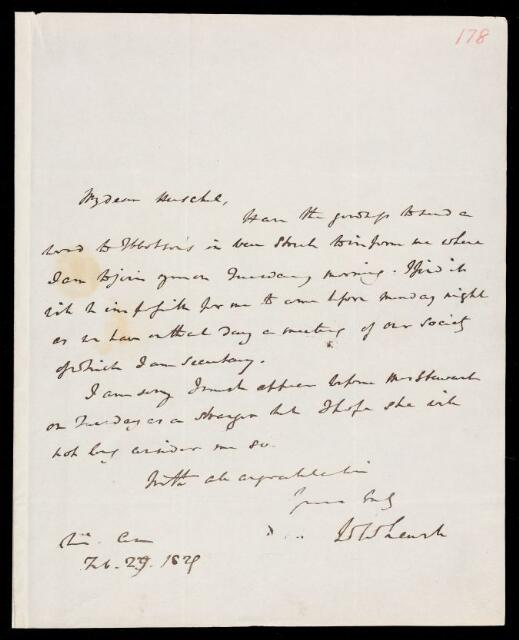 178
My dear Herschel,
Have the goodness to send a
word to Ibbotson's in Vere Street to inform me where
I am to join you on Tuesday morning. I find it
will be impossible for me to come before Monday night
as we have on that day a meeting of our Society
of which I am Secretary.
I am sorry I must appear before Mrs Stewart
on Tuesday as a stranger but I hope she will
not long consider me so.
With all congratulation
Yours truly
W Whewell
Trin. Coll.
Feb. 29. 1829